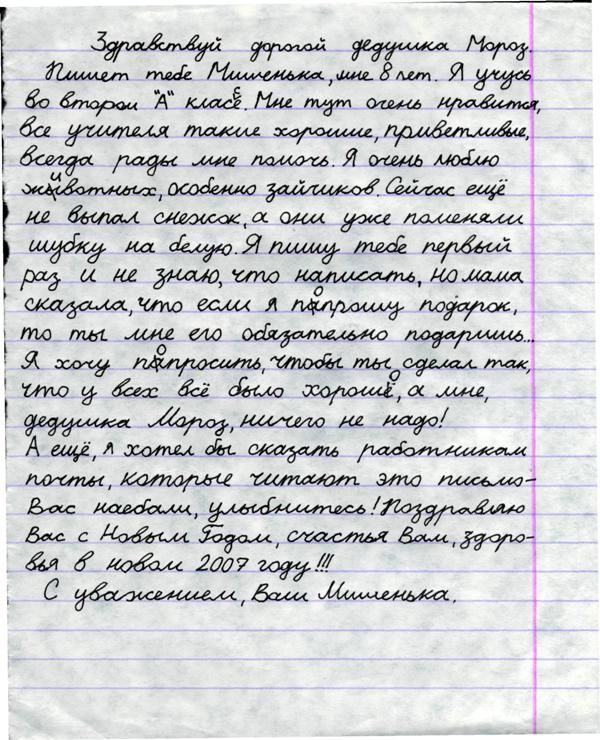 Здравствуй дорогой дедушка Мороз.
Пишет тебе Мишенька, мне 8 лет. Я учусь
во втором "А" класе. Мне тут очень нравится,
все учителя такие хорошие, приветливые,
всегда рады мне помочь. Я очень люблю
животных, особенно зайчиков. Сейчас ещё
не выпал снежок, а они уже поменяли
шубку на белую. Я пишу тебе первый
раз и не знаю, что написать, но мама
сказала, что если я попрошу подарок,
то ты мне его обязательно подаришь...
Я хочу попросить, чтобы ты сделал так,
что у всех всё было хорошо, а мне,
дедушка Мороз, ничего не надо!
А ещё, я хотел бы сказать работникам
почты, которые читают это письмо-
Вас наебали, улыбнитесь! Поздравляю
Вас с Новым Годом, счастья Вам, здоро-
вья в новом 2007 году!!!
С уважением, Ваш Мишенька.